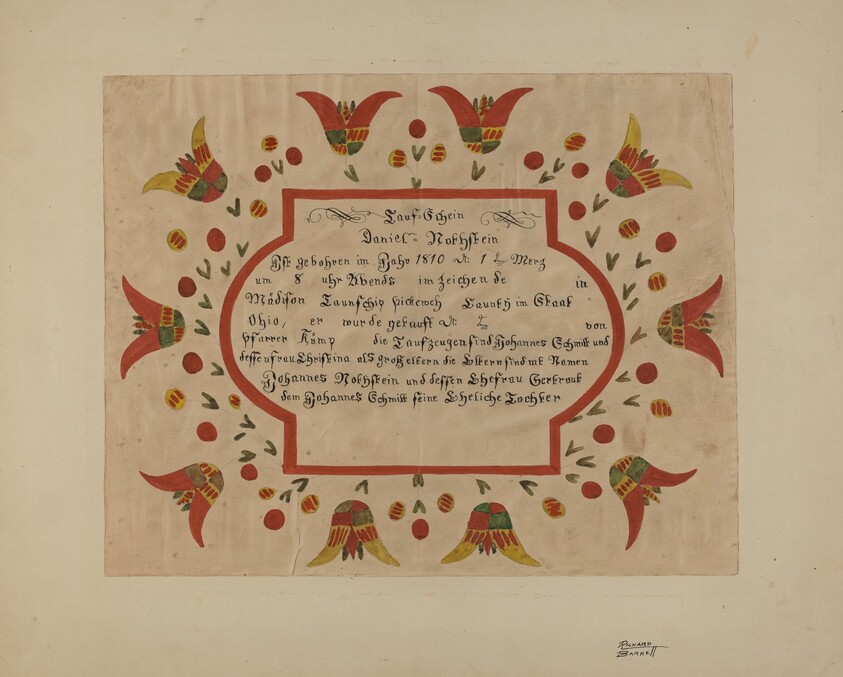 Tauf=Schein
Daniel Nothstein
Ist gebohren im Jahr 1810 1 Merz
um 8 uhr Abends im zeichen de in
Mädison Taunschip pickeweh Caunty im Staat
Ohio, er wurde getauft von
Pfarrer Kämp die Taufzeugen sind Johannes Schmitt und
dessen frau Christina als grosseltern die Eltern sind mt Namen
Johannes Nothstein und dessen Ehefrau Gertrout
dem Johannes Schmitt seine Eheliche Tochter
RICHARD
BARNETT